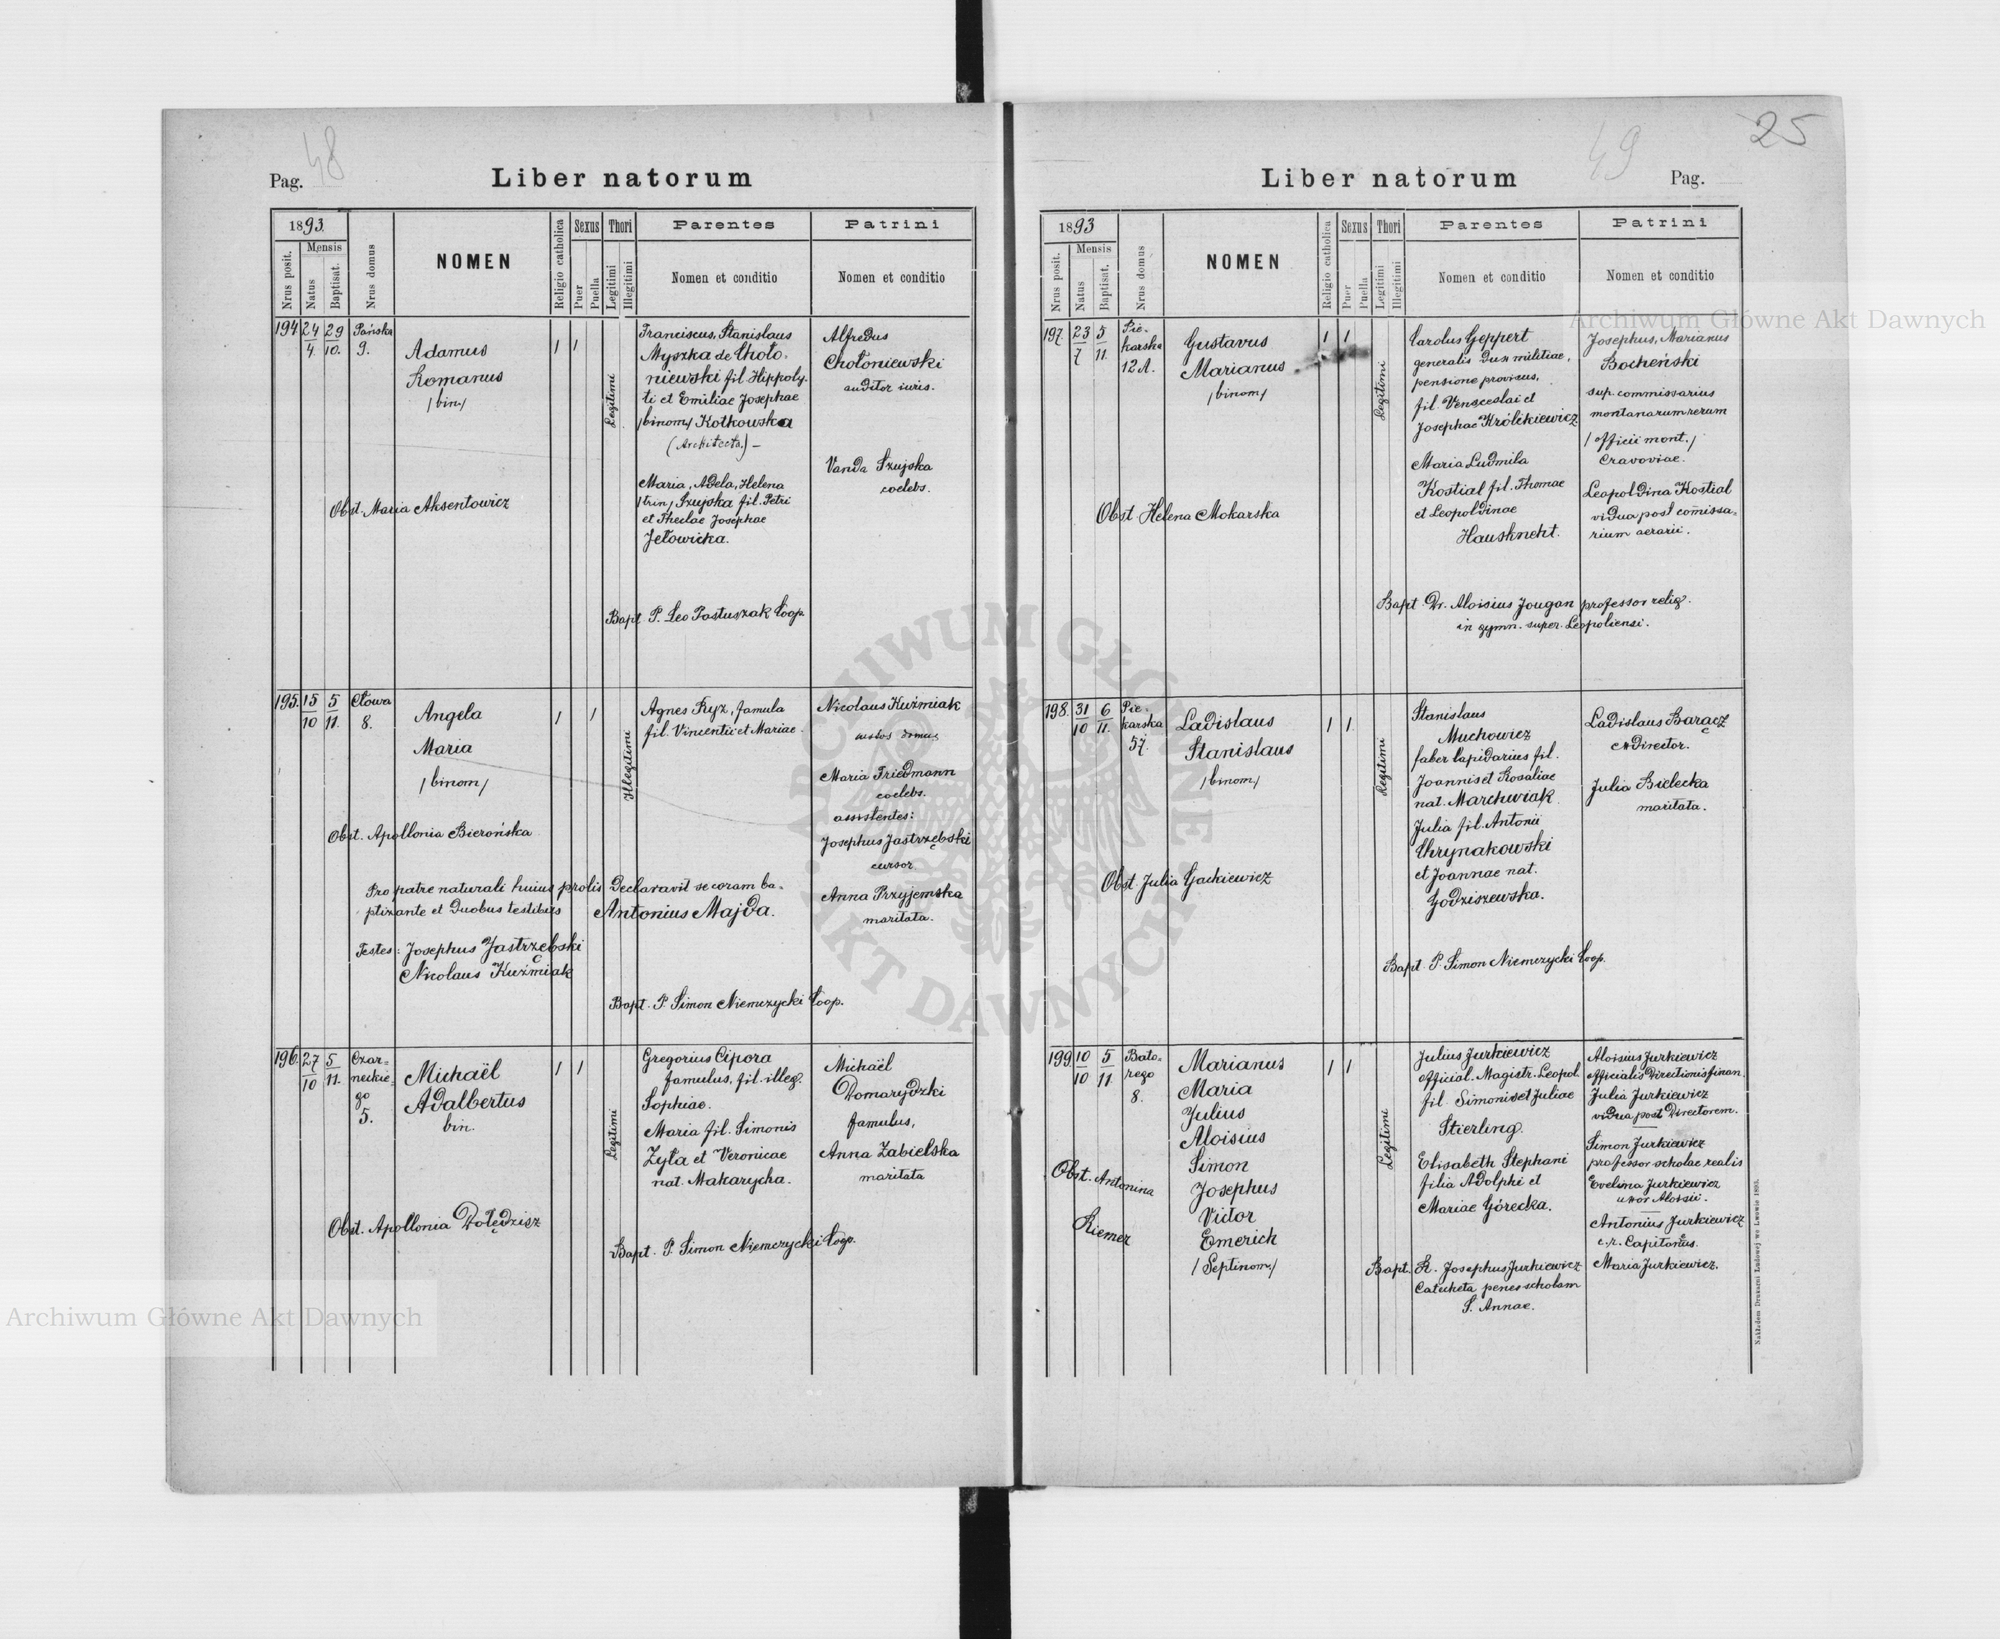 48
Pag.
Liber natorum
1893
Nrus posit.
Mensis
Natus
Baptisat.
Nrus domus
NOMEN
Religio catholica
Sexus
Puer
Puella
Thori
Legitimi
Illegitimi
Parentes
Nomen et conditio
Patrini
Nomen et conditio
194
24/4
29/10.
Pańska
9.
Adamus
Romanus
/bin./
1 1
Legitimi
Franciscus, Stanislaus
Myszka de Choło-
niewski fil. Hippoly-
ti et Emiliae Josephae
/binom/ Kotkowska
(Architecto.) –
Maria, Adela, Helena
/trin/ Szujska fil. Petri
et Theclae Josephae
Jełowicka.
Alfredus
Chołoniewski
auditor iuris.
Vanda Szujska
coelebs.
Obst. Maria Aksentowicz
Bapt. P. Leo Pastuszak Coop.
195.
15/10
5/11.
Cłowa
8.
Angela
Maria
/binom/
1 1
Illegitimi
Agnes Ryz, famula
fil. Vincentii et Mariae.
Nicolaus Kuźmiak
custos domus
Maria Friedmann
coelebs.
assistentes:
Josephus Jastrzębski
cursor
Anna Przyjemska
maritata.
Obst. Apollonia Bierońska
Pro patre naturali huius prolis declaravit se coram ba-
ptizante et duobus testibus Antonius Majda.
Testes: Josephus Jastrzębski
Nicolaus Kuźmiak
Bapt. P. Simon Niemczycki Coop.
196.
27/10
5/11.
Czar-
neckie-
go
5.
Michaël
Adalbertus
bin.
1 1
Legitimi
Gregorius Cipora
famulus, fil. illeg.
Sophiae.
Maria fil. Simonis
Zyła et Veronicae
nat. Makarycha.
Michaël
Domarydzki
famulus,
Anna Zabielska
maritata
Obst. Apollonia Dołędzisz
Bapt. P. Simon Niemczycki Coop.
49
25
Liber natorum
Pag.
1893
Nrus posit.
Mensis
Natus
Baptisat.
Nrus domus
NOMEN
Religio catholica
Sexus
Puer
Puella
Thori
Legitimi
Illegitimi
Parentes
Nomen et conditio
Patrini
Nomen et conditio
197.
23/7
5/11.
Pie-
karska
12 A.
Gustavus
Marianus
/binom/
1 1
Legitimi
Carolus Geppert
generalis Dux militiae,
pensione provisus,
fil. Venceslai et
Josephae Królikiewicz.
Maria Ludmila
Kostial fil. Thomae
et Leopoldinae
Hausknecht.
Josephus, Marianus
Bocheński
sup. commissarius
montanarum rerum
/officii mont./
Cracoviae.
Leopoldina Kostial
vidua post comissa-
rium aerarii.
Obst Helena Mokarska
Bapt. Dr. Aloisius Jougan professor relig.
in gymn. super. Leopoliensi.
198.
31/10
6/11.
Pie-
karska
57.
Ladislaus
Stanislaus
/binom/
1 1
Legitimi
Stanislaus
Muchowicz
faber lapidarius fil.
Joannis et Rosaliae
nat. Marchwiak
Julia fil. Antonii
Chrynakowski
et Joannae nat.
Godziszewska.
Ladislaus Barącz
Director.
Julia Bielecka
maritata.
Obst. Julia Gackiewicz
Bapt. P. Simon Niemczycki Coop.
199.
10/10
5/11
Bato-
rego
8.
Marianus
Maria
Julius
Aloisius
Simon
Josephus
Victor
Emerich
/Septinom./
1 1
Legitimi
Julius Jurkiewicz
official. Magistr. Leopol.
fil. Simonis et Juliae
Stierling.
Elisabeth Stephani
filia Adolphi et
Mariae Górecka.
Aloisius Jurkiewicz
officialis Directionis finan.
Julia Jurkiewicz
vidua post Directorem.
Simon Jurkiewicz
professor scholae realis
Evelina Jurkiewicz
uxor Aloisii.
Antonius Jurkiewicz
c. r. Capitaneus.
Maria Jurkiewicz.
Obst. Antonina
Riemer
Bapt. R. Josephus Jurkiewicz
Catecheta penes scholam
S. Annae.
Nakładem Drukarni Ludowej we Lwowie 1893.
Archiwum Główne Akt Dawnych
Archiwum Główne Akt Dawnych
ARCHIWUM GŁÓWNE AKT DAWNYCH